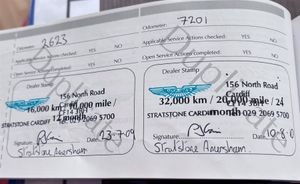 Odometer: 2623
Applicable Service Actions checked: YES NO
Open Service Actions Completed: YES NO
Dealer Stamp
156 North Road
Cardiff
16,000 km / 10,000 mile /
12 month
STRATSTONE CARDIFF 029 2069 5700
Signature: Date: 23.7.09
Stratstone Amersham.
Duplicate
Odometer: 7201
Applicable Service Actions checked: YES NO
Open Service Actions completed: YES NO
Dealer Stamp
156 North Road
Cardiff
32,000 km / 20,000 mile / 24
month
STRATSTONE CARDIFF 029 2069 5700
Signature: Date:
Stratstone Amersham.
Duplicate